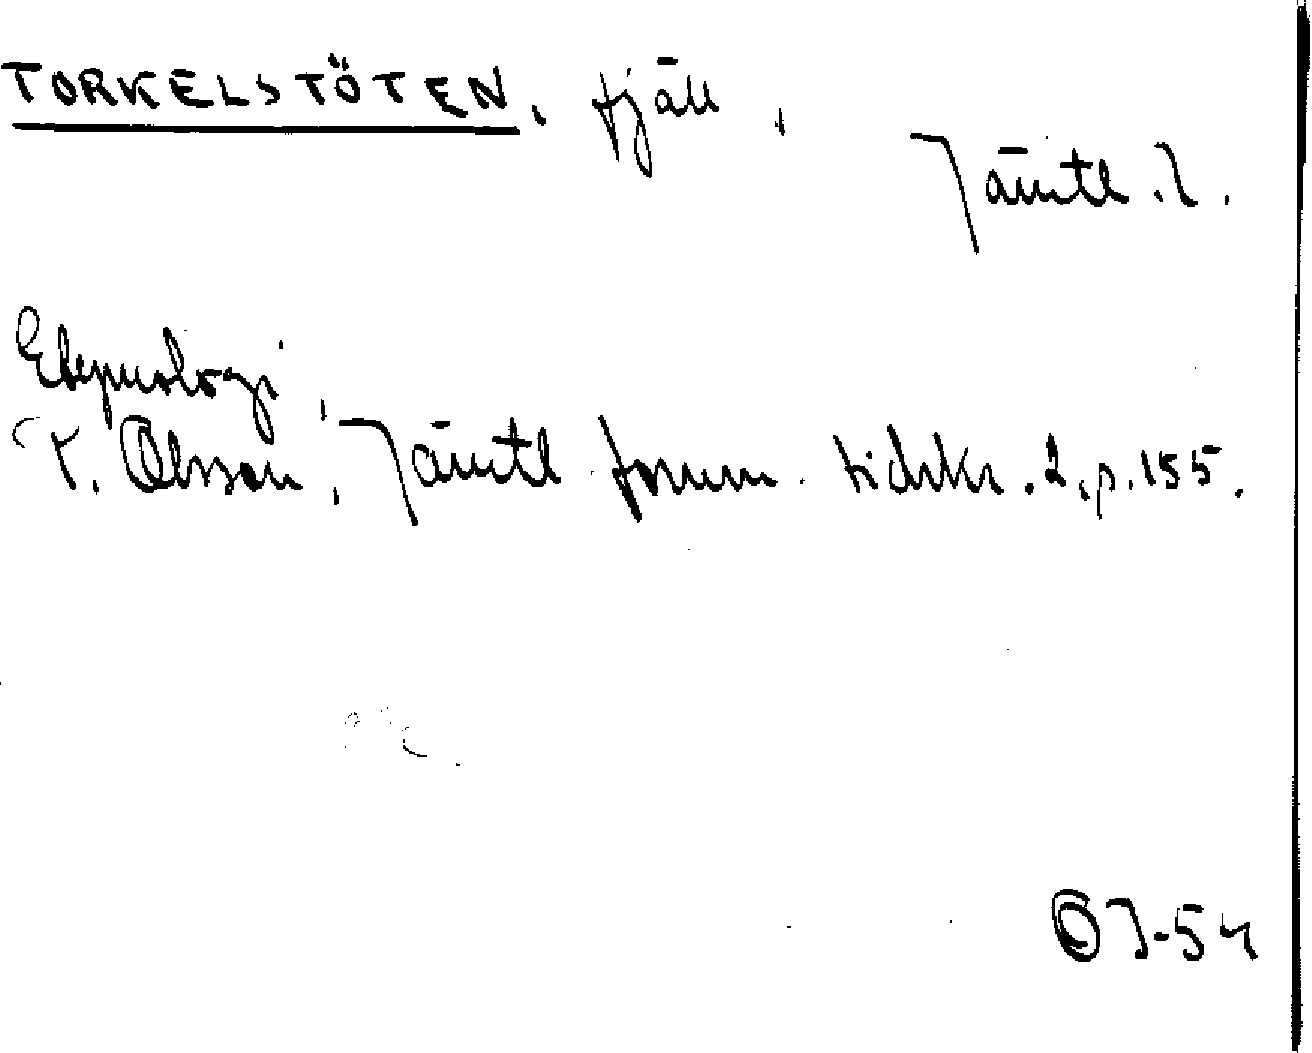 TORKELSTÖTEN, fjäll,
Jämtl. l.
Etymologi,
T. Olsson, Jämtl fornm. tidskr. 2, p. 155.
ÖJ-54